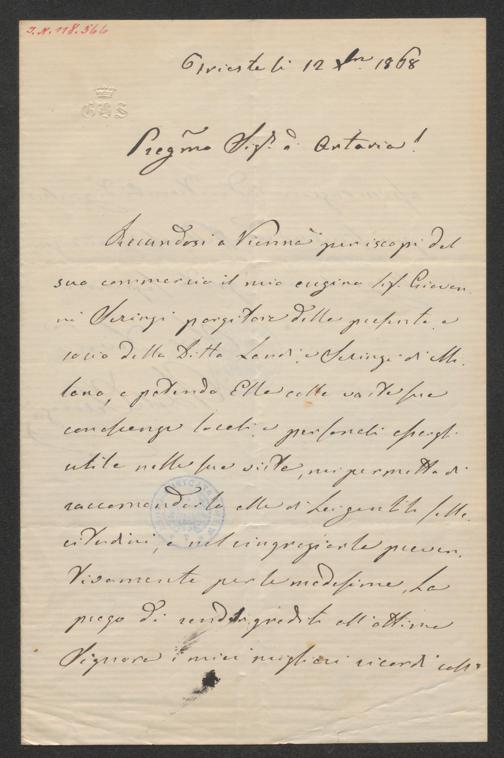 I.N. 118.366
Trieste li 12 Xbre 1868
Pregmo Sigr d Artaria!
Recandosi a Vienna per iscopi del
suo commercio il mio cugino Sigr Giovan-
ni Seringi porgitore della presente e
socio della Ditta Landi e Seringi di Mi-
lano, e potendo Ella colle vaste sue
conoscenze locali e personali essergli
utile nelle sue viste, mi permetto di
raccomandarlo alle di Lei gentili solle-
citudini, e nel ringraziarla preven-
tivamente per le medesime, La
prego di render graditi all'ottima
Signora i miei migliori ricordi coll'